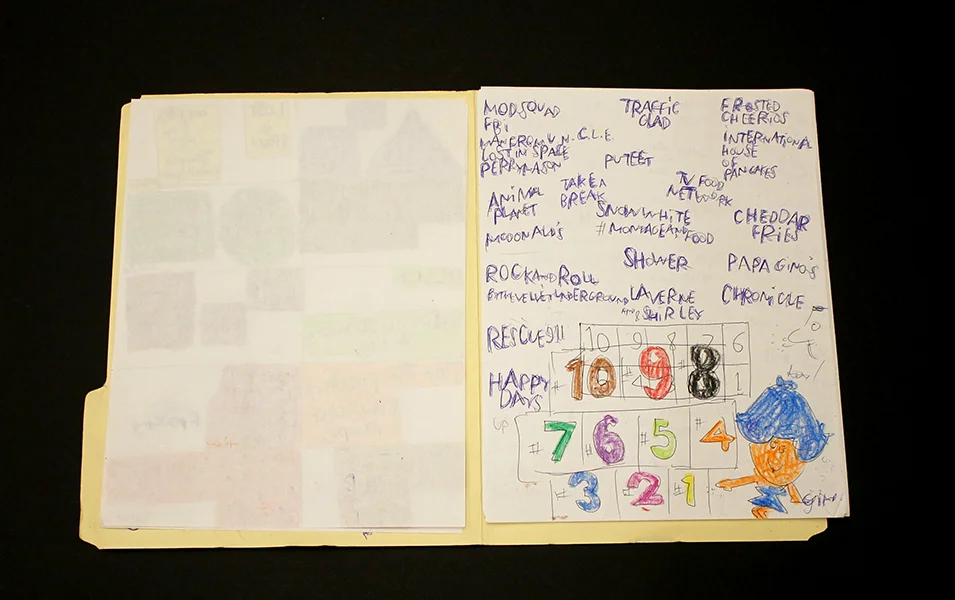 MODSQUAD
FBI
MANFROMU.N.C.L.E.
LOST IN SPACE
PERRYMASON
TRAFFIC
GLAD
FROSTED
CHEERIOS
INTERNATIONAL
HOUSE
OF
PANCAKES
PUTEET
ANIMAL
PLANET
TAKE A
BREAK
TV FOOD
NETWORK
MCDONALD'S
SNOWWHITE
FOOD
CHEDDAR
FRIES
ROCK AND ROLL
BYTHEVELVETUNDERGROUND
SHOWER
LAVERNE
AND SHIRLEY
PAPA GINO'S
CHRONICLE
RESCUE911
HAPPY
DAYS
10 9 8 7 6
1
#10 #9 #8
UP
#7 #6 #5 #4
#3 #2 #1